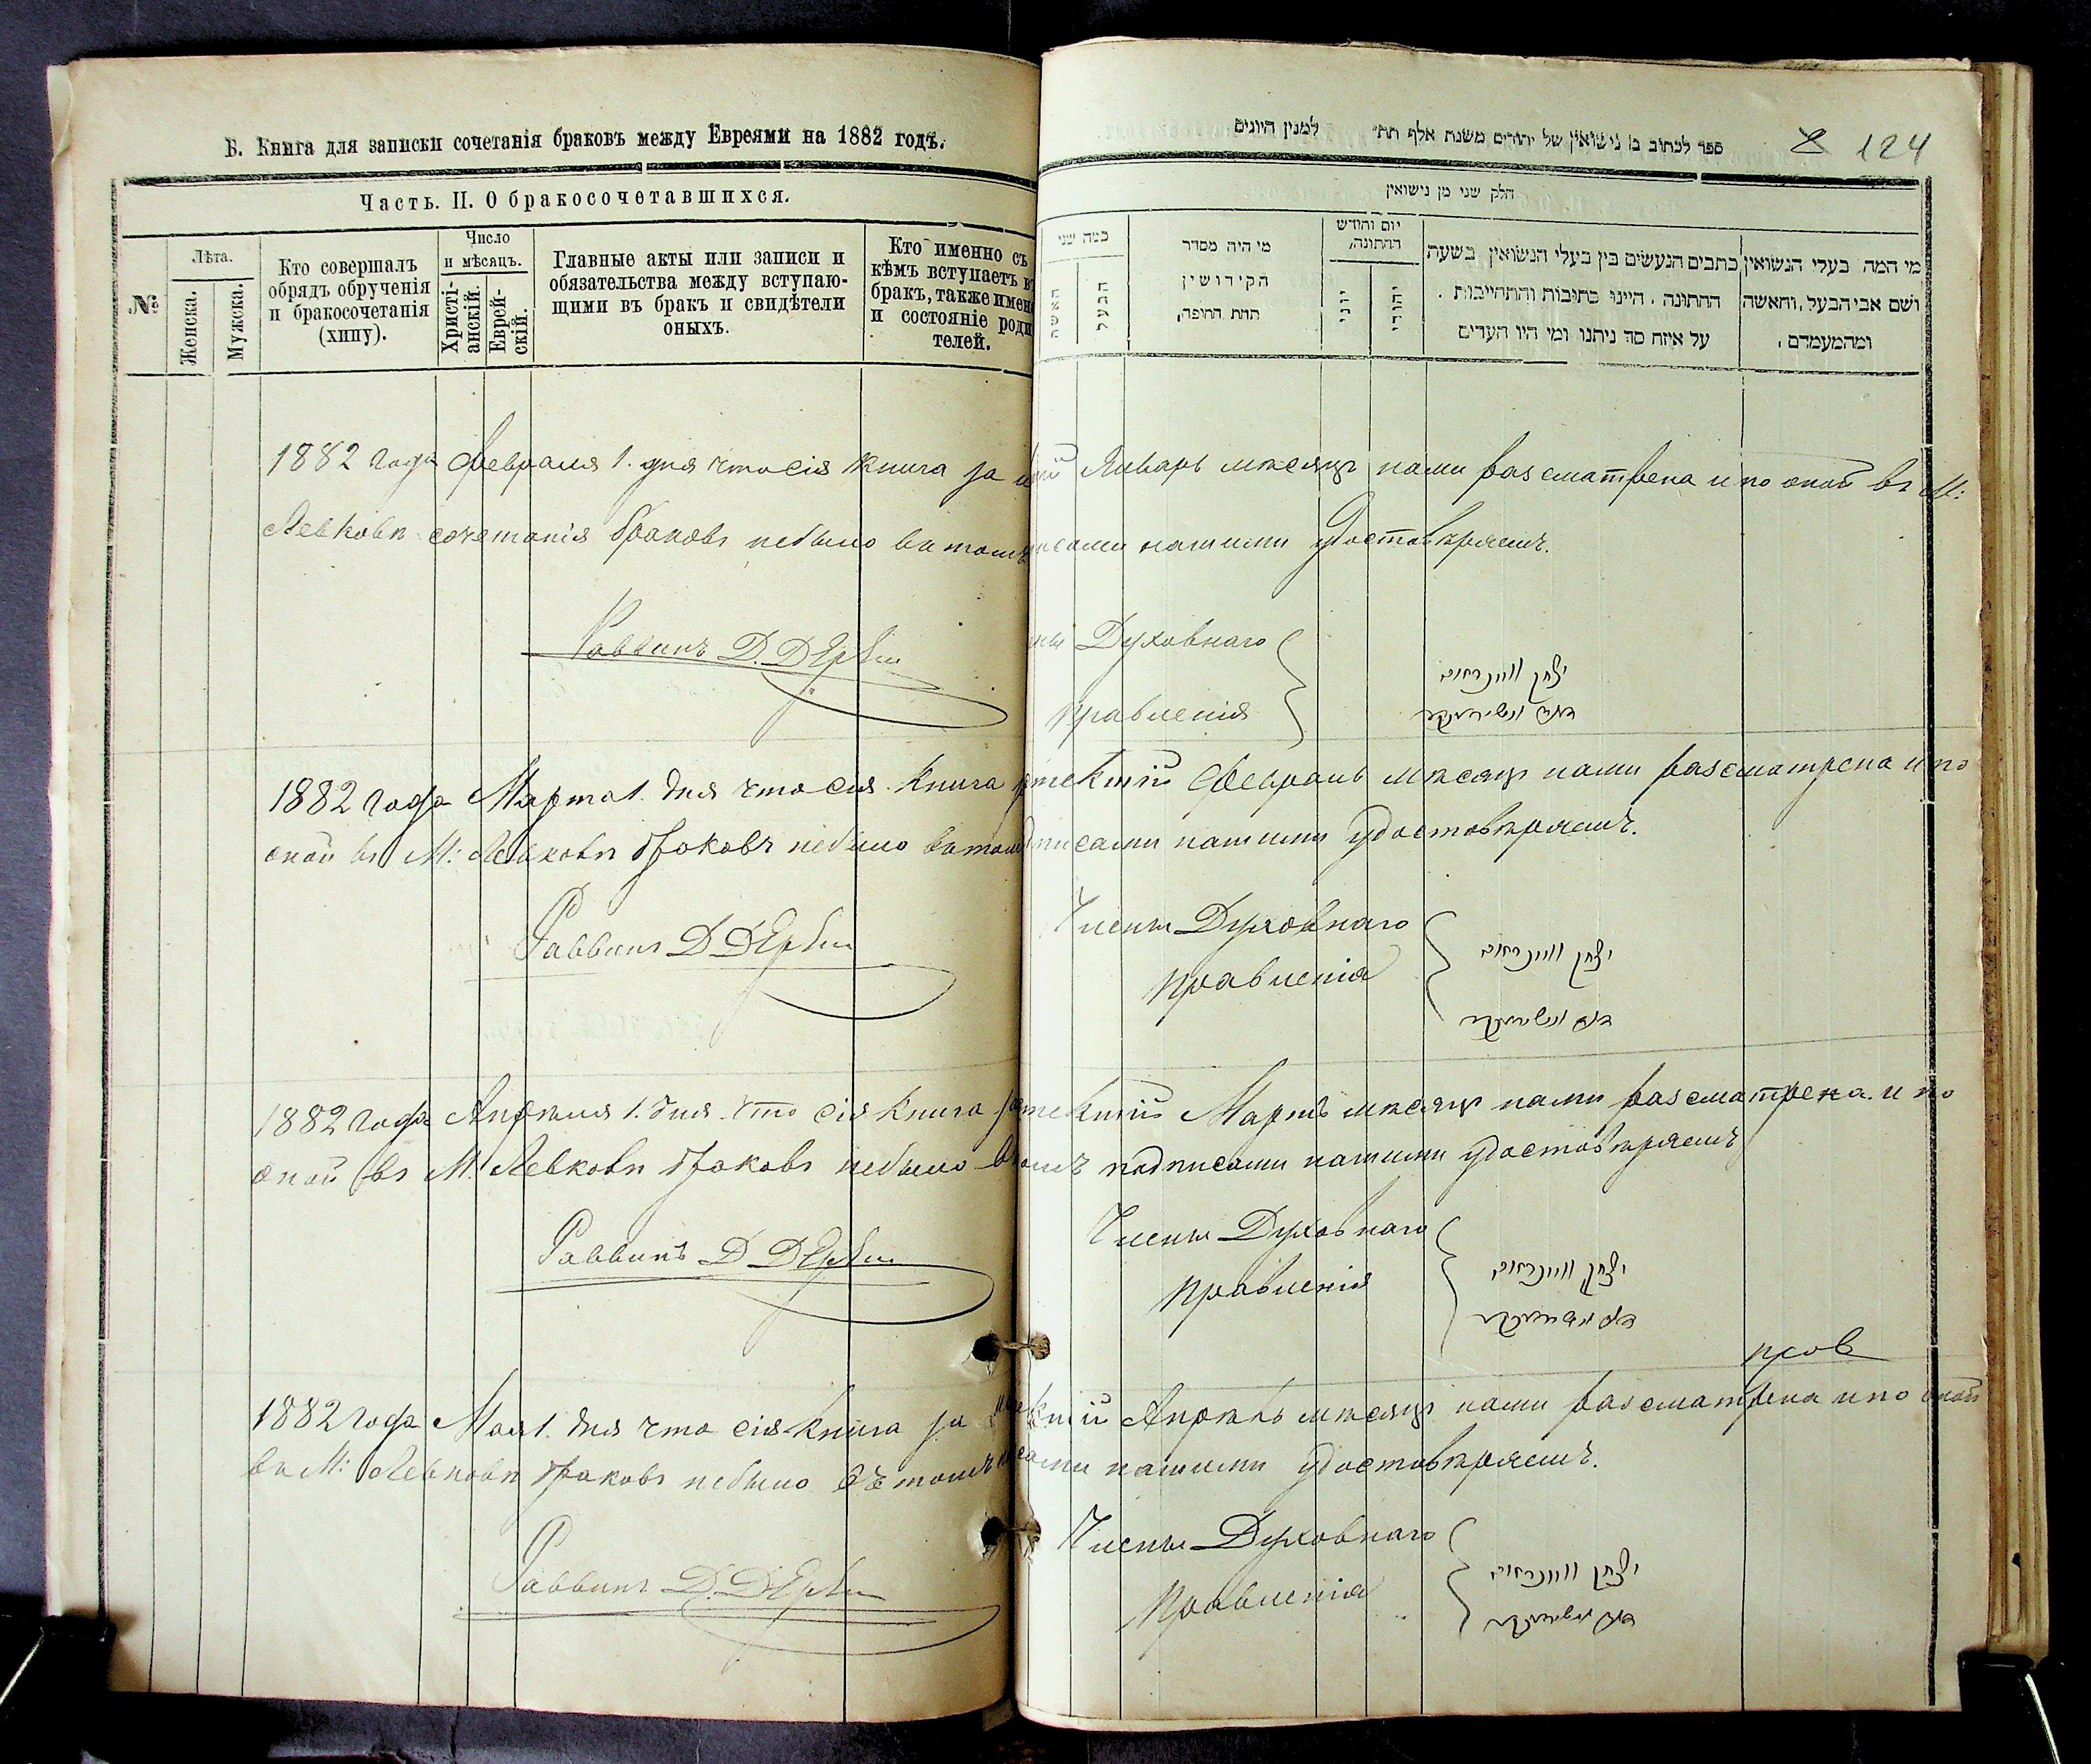 Б. Книга для записки сочетанія браковъ между Евреями на 1882 годъ.
Часть. II. О бракосочетавшихся.
№
Лѣта.
Женска.
Мужска.
Кто совершалъ обрядъ обрученія и бракосочетанія (хипу).
Число и мѣсяцъ.
Христі-анскій.
Еврей-скій.
Главные акты или записи и обязательства между вступаю-щими въ бракъ и свидѣтели оныхъ.
Кто именно съ кѣмъ вступаетъ въ бракъ, также имена и состояніе роди телей.
ספר לכתוב בו נישואין של יהודים משנת אלף תת״ למנין היונים
124
חלק שני מן נישואין
כמה שני
האשה
הבעל
מי היה מסדר
הקידושין
תחת החופה,
יום וחודש
החתונה,
יוני
יהודי
כתבים הנעשים בין בעלי הנשואין בשעת
החתונה, היינו כתובות והתחייבות,
על איזה סך ניתנו ומי היו העדים
מי המה בעלי הנשואין
ושם אבי הבעל, והאשה
ומהמעמדם,
1882 года Февраля 1. дня что сія книга за Январь мѣсяцъ нами разсматрена и по оной въ М:
Левковѣ сочетанія браковъ небыло въ томъ нашими удостовѣряемъ.
Раввинъ Д.
Духовнаго
Правленія
יצחק
1882 года Марта 1. дня что сія книга Февраль мѣсяцъ нами разсматрена и по
оной въ М: Левковѣ браковъ небыло въ томъ нашими удостовѣряемъ.
Раввинъ Д.
Члены Духовнаго
Правленія
יצחק
1882 года Апрѣля 1. дня что сія книга Мартъ мѣсяцъ нами разсматрена и по
оной въ М. Левковѣ браковъ небыло подписами нашими удостовѣряемъ
Раввинъ Д
Члены Духовнаго
Правленія
יצחק
1882 года Мая 1. дня что сія книга за Апрѣль мѣсяцъ нами разсматрена и по оной
въ М: Левковѣ браковъ небыло въ томъ нашими удостовѣряемъ.
Раввинъ Д.
Члены Духовнаго
Правленія
יצחק